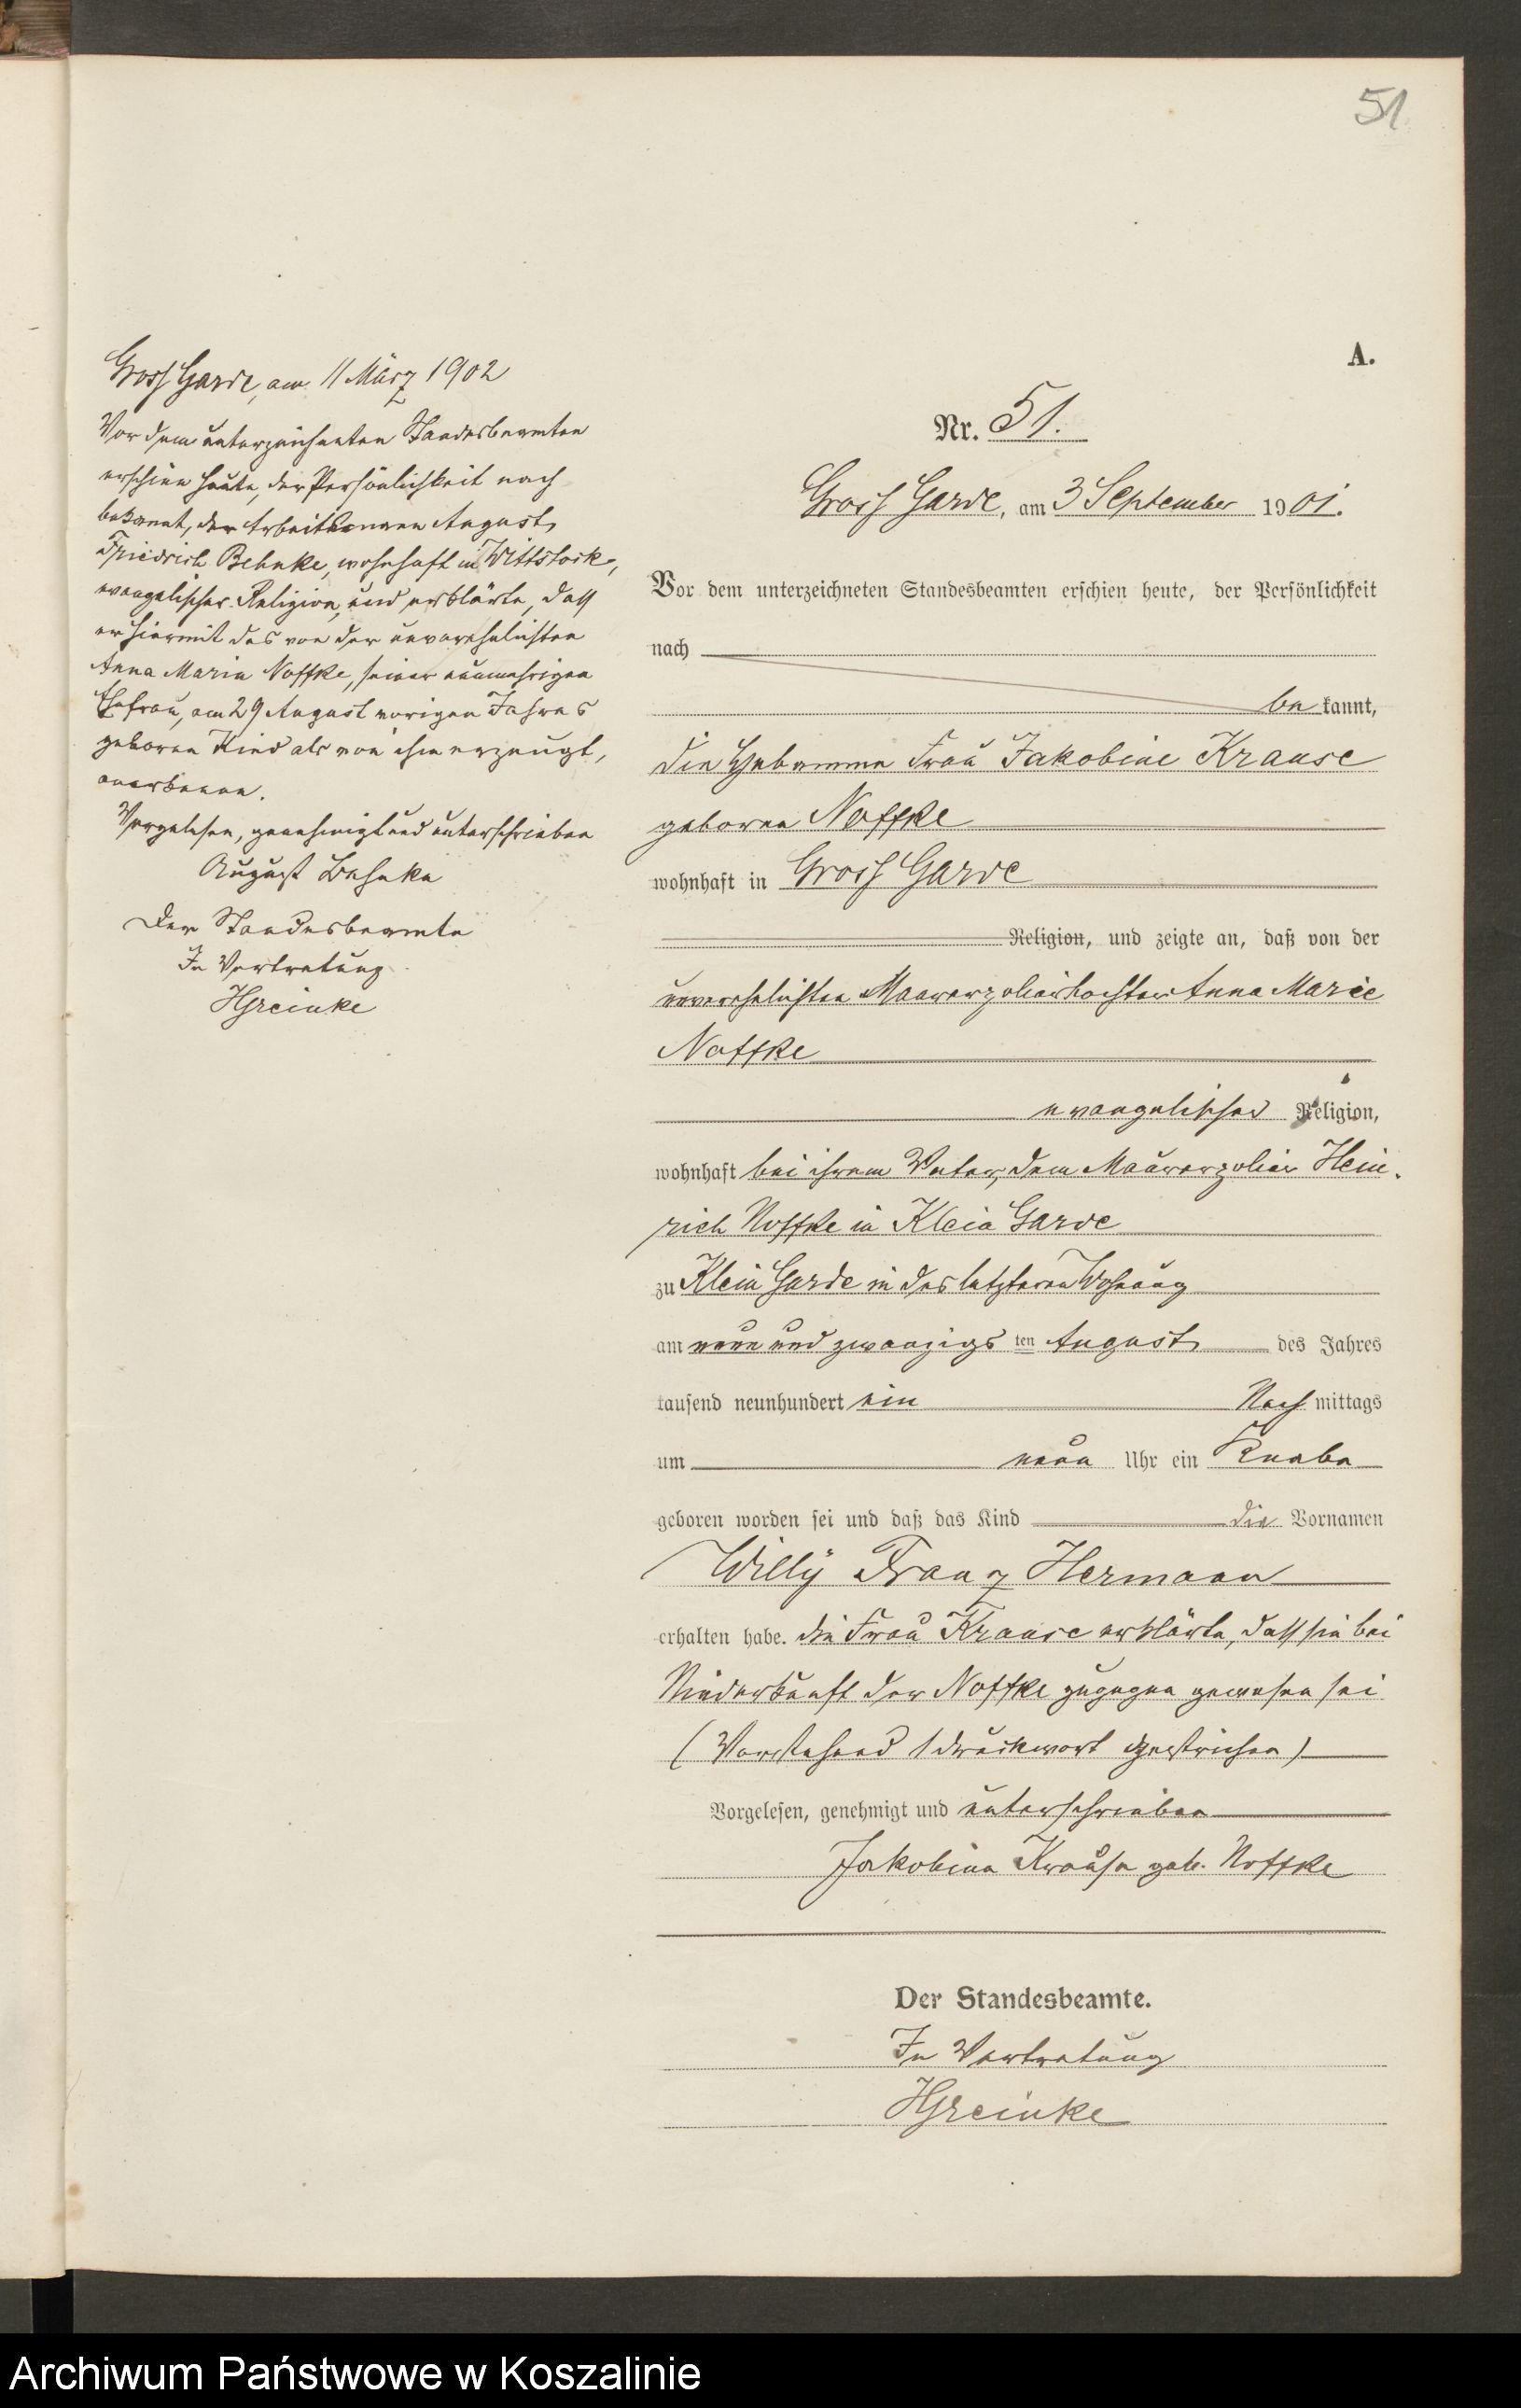 51
Gross Garde, am 11 März 1902
Vor dem unterzeichneten Standesbeamten
erschien heute, der Persönlichkeit nach
bekannt, der Arbeitsmann August
Friedrich Behnke, wohnhaft in Wittstock,
evangelischer Religion, und erklärte, dass
er hiermit das von der unverehelichten
Anna Marie Noffke, seiner nunmehrigen
Ehefrau, am 29 August vorigen Jahres
geboren Kind als von ihm erzeugt,
anerkenne.
Vorgelesen, genehmigt und unterschrieben
August Behnke
Der Standesbeamte
In Vertretung
HGreinke
A.
Nr. 51.
Gross Garde, am 3 September 1901.
Vor dem unterzeichneten Standesbeamten erschien heute, der Persönlichkeit
nach
be kannt,
die Hebamme Frau Jakobine Krause
geborne Noffke
wohnhaft in Gross Garde
Religion, und zeigte an, daß von der
unverehelichten Maurerpoliertochter Anna Marie
Noffke
evangelischer Religion,
wohnhaft bei ihrem Vater, dem Maurerpolier Hein-
rich Noffke in Klein Garde
zu Klein Garde in des letzteren Wohnung
am neun und zwanzigs ten August des Jahres
tausend neunhundert ein Nach mittags
um neun Uhr ein Knabe
geboren worden sei und daß das Kind die Vornamen
Willÿ Franz Hermann
erhalten habe. Die Frau Krause erklärte, dass sie bei
Niederkunft der Noffke zugegen gewesen sei
(Vorstehend 1 Druckwort gestrichen)
Vorgelesen, genehmigt und unterschrieben
Jakobine Krause geb. Noffke
Der Standesbeamte.
In Vertretung
HGreinke
Archiwum Państwowe w Koszalinie